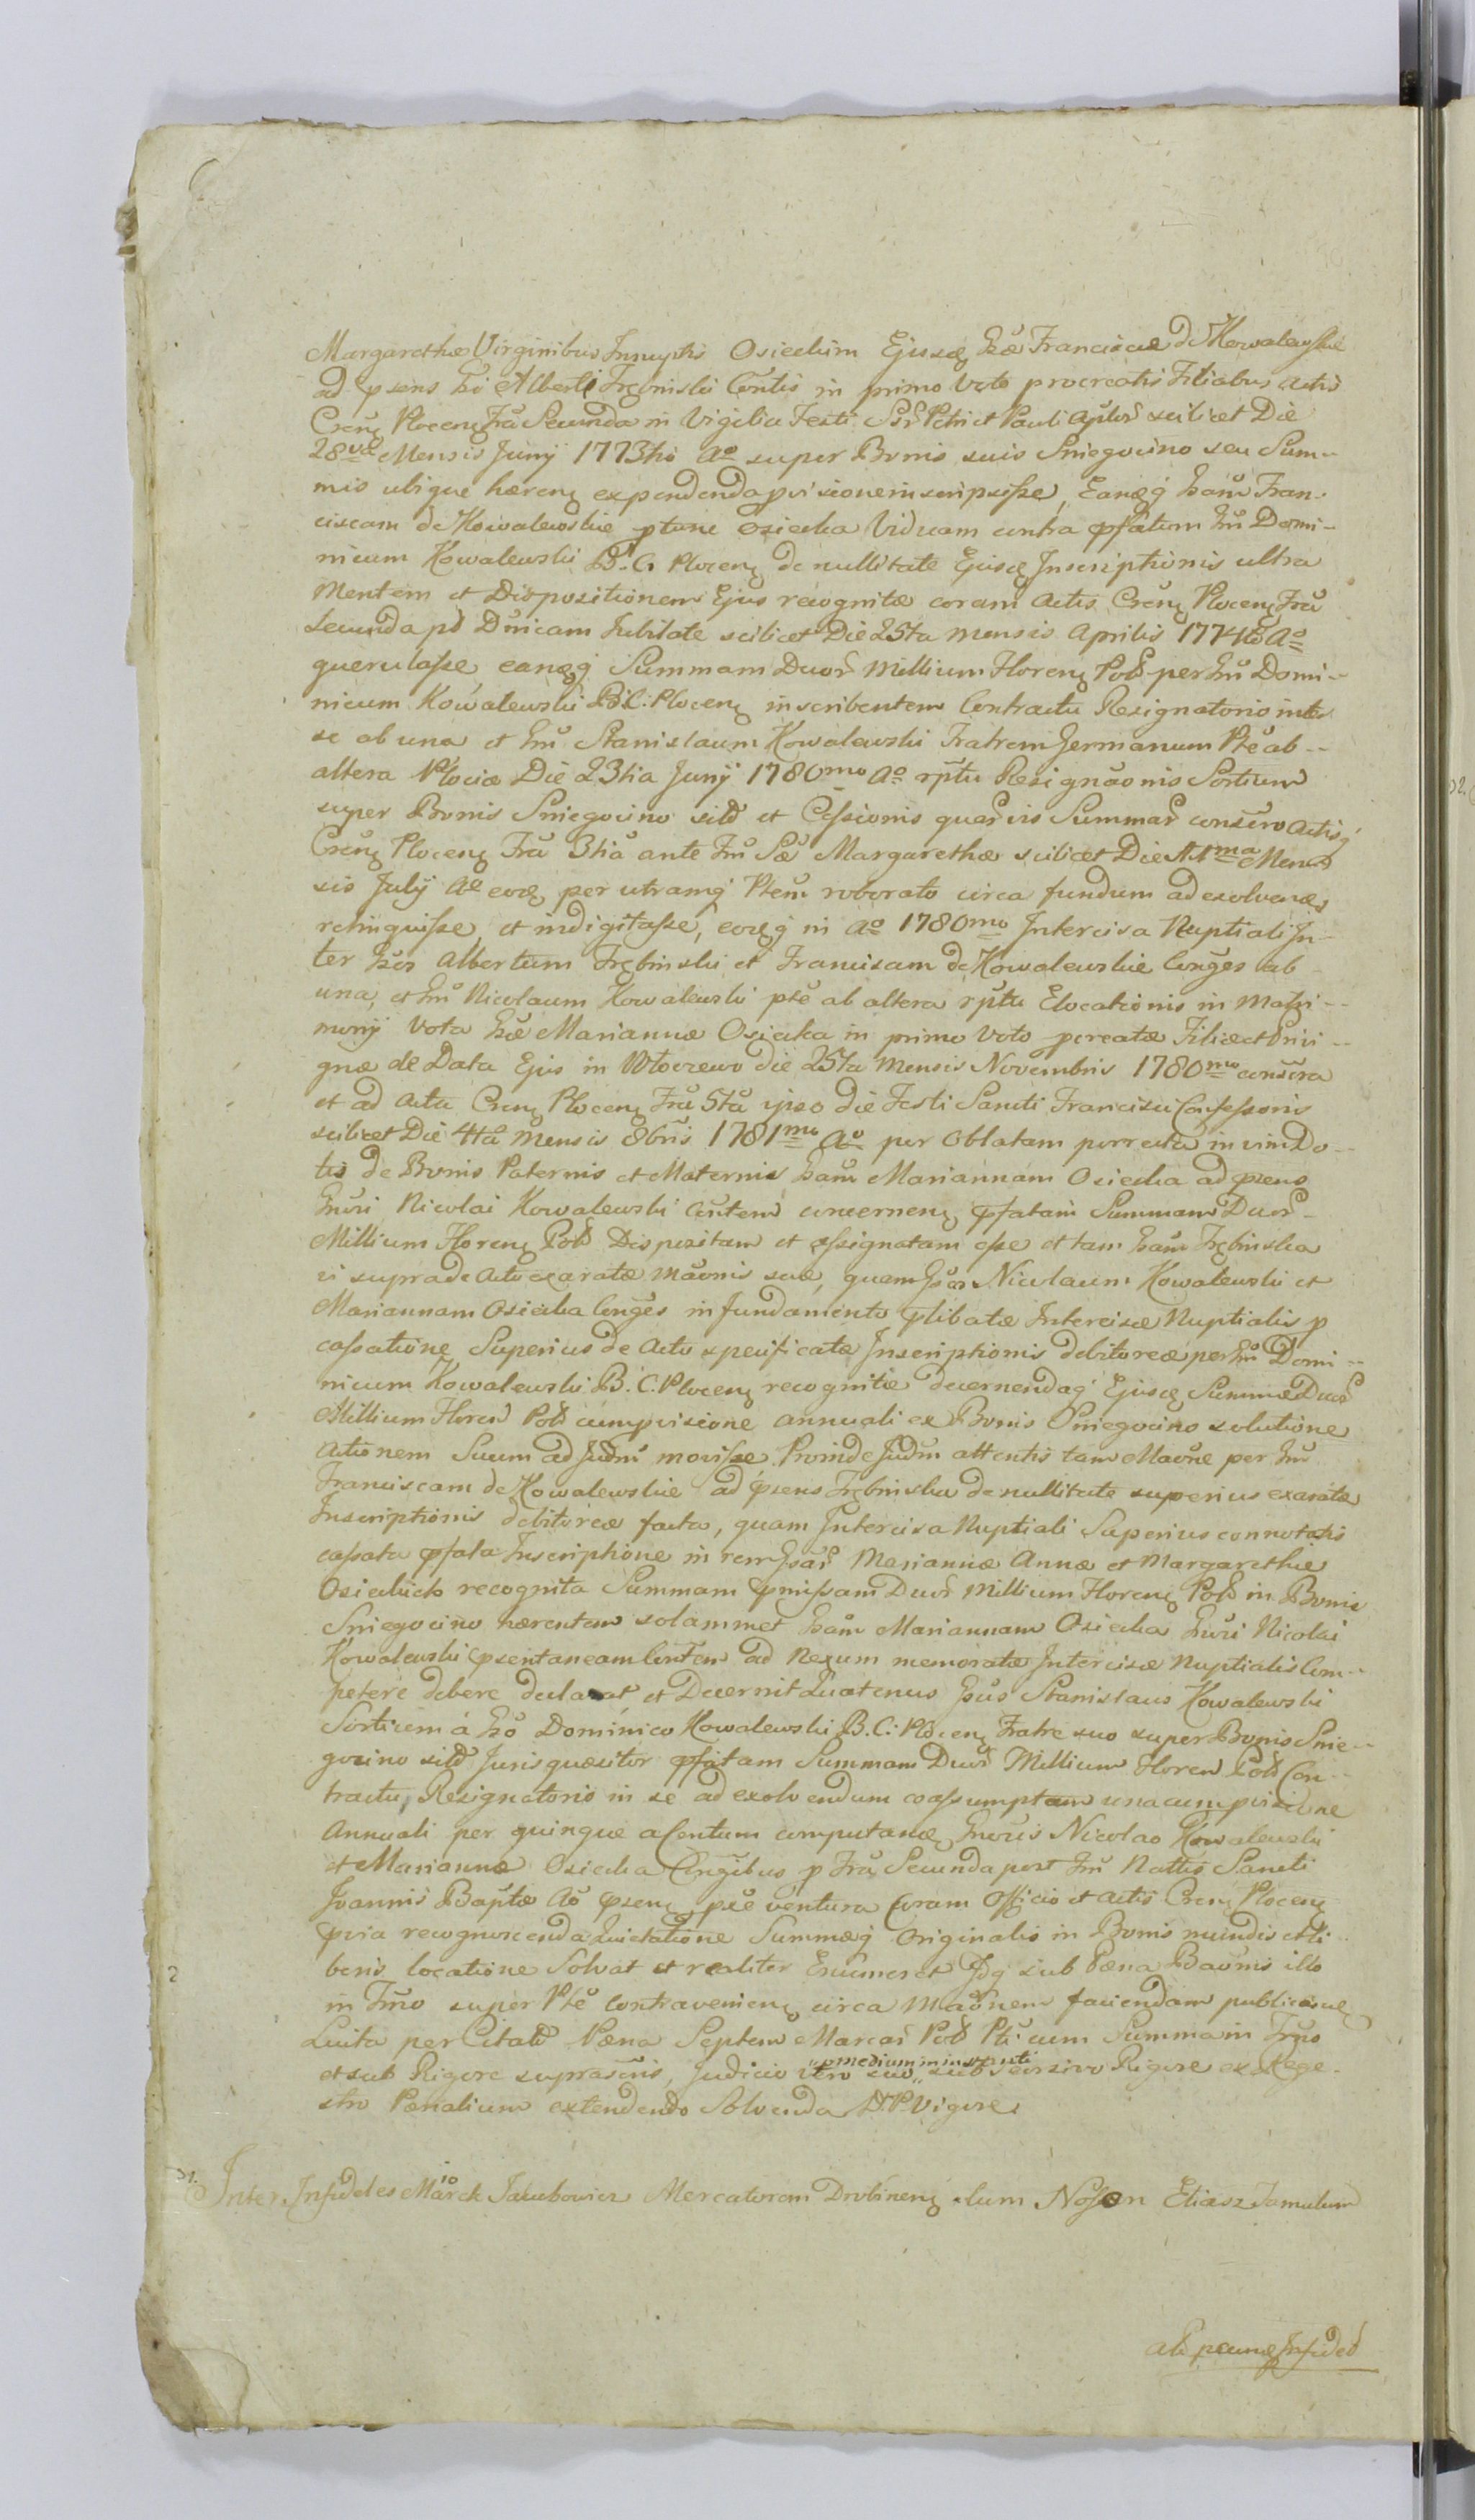 Margarethæ Virginibus Innuptis Osieckim Ejusdę Gsæ Franciscæ de Kowalewskie
ad psens Gsi Alberti Trębinski Contis in primo Voto procreatis Filiabus Actis
Creńę Plocenę Fră Secunda in Vigilia Festi SSr Petri et Pauli Aplor scilicet Die
28va Mensis Junÿ 1773tio Ao super Bonis suis Sniegocino seu Sum-
mis ubique hærenę expendenda pvisione inscripsisse, Eandęq Gsam Fran-
ciscam de Kowalewskie ptunc Osiecka Viduam contra pfatum Gsm Domi-
nicum Kowalewski B. C. Plocenę de nullitate Ejusdę Inscriptionis ultra
Mentem et Dispositionem Ejus recognitæ coram Actis Creńę Plocenę Fră
Secunda pt Dńicam Jubilate scilicet Die 25ta Mensis Aprilis 1774to Ao
querulasse, eandęq Summam Duor Millium Florenę Pol per Gsm Domi-
nicum Kowalewski B. C. Plocenę inscribentem Contractu Resignatorio inter
se ab una et Gsm Stanislaum Kowalewski Fratrem Germanum Pte ab
altera Plociæ Die 23tia Junÿ 1780mo Ao rptu Resignăonis Sortium
super Bonis Sniegocino sitt et Cessionis quarvis Summar conscro Actisq
Creńę Plocenę Fră 3tia ante Fm Sæ Margarethæ scilicet Die 11ma Men-
sis Julÿ Ao eodę per utramq Ptem roborato circa fundum ad exolvendę
relinquisse, et indigitasse, eodęq in Ao 1780mo Intercisa Nuptiali In-
ter Gsos Albertum Trębinski et Franciscam de Kowalewskie Conges ab
una, et Gsm Nicolaum Kowalewski pte ab altera rptu Elocationis in Matri-
monÿ Vota Gsæ Mariannæ Osiecka in primo Voto pcreatæ Filiæ et Privi-
gnæ de Data Ejus in Włoczewo die 25ta Mensis Novembris 1780mo conscra
et ad Acta Creńę Plocenę Fră 5ta ipso die Festi Sancti Francisci Confessoris
scilicet Die 4ta Mensis 8bris 1781mo Ao per Oblatam porrecta in vim Do-
tis de Bonis Paternis et Maternis Gsam Mariannam Osiecka ad psens
Gnŭri Nicolai Kowalewski Contem concernenę pfatam Summam Duor
Millium Florenę Pol Dispositam et assignatam esse et tam Gsam Trębinska
vi suprade Actu exaratæ Măonis suæ, quam Gsos Nicolaum Kowalewski et
Mariannam Osiecka Conges in fundamento plibatæ Intercisæ Nuptialis p
cassatione Superius de Actu specificatæ Inscriptionis debitoreæ per Gsm Domi-
nicum Kowalewski B. C. Plocenę recognitæ decernendaq Ejusdę Summæ Duor
Millium Floren Pol cum pvisione annuali ex Bonis Sniegocino solutione
Actionem Suam ad Judm movisse. Proinde Judm attentis tam Maone per Gsm
Franciscam de Kowalewskie ad psens Trębinska de nullitate superius exaratæ
Inscriptionis debitoreæ facta, quam Intercisa Nuptiali Superius connotatis
cassata pfata Inscriptione in rem Gsar Mariannæ Annæ et Margarethæ
Osieckich recognita Summam pmissam Duor Millium Florenę Pol in Bonis
Sniegocino hærentem solammet Gsam Mariannam Osiecka Gnŭri Nicolai
Kowalewski psentaneam Contem ad Nexum memoratæ Intercisæ Nuptialis Com-
petere debere declarat et Decernit Quatenus Gsus Stanislaus Kowalewski
Sortium á Gso Dominico Kowalewski B. C. Plocenę Fratre suo super Bonis Snie-
gocino sitt Jurisquæsitor pfatam Summam Duor Millium Floren Pol Con-
tractu Resignatorio in se ad exolvendum coassumptam unacum pvisione
Annuali per quinque a Centum computandę Gnoris Nicolao Kowalewski
et Mariannæ Osiecka Congibus p Fră Secunda post Fm Nattis Sancti
Joannis Baptæ Ao psenę pxe ventura Coram Officio et Actis Creńę Plocenę
pvia recognoscenda Quietatione Summæq Originalis in Bonis mundis et li-
beris locatione Solvat et realiter Enumeret Idq sub Pæna Baonis illo
in Trno super Pte Contravenienę circa Maonem faciendam publicandę
Luita per Citatt Pæna Septem Marcar Pol Pti cum Summa in Trno
et sub Rigore suprascris, Judicio vero suo „pmedium ministrati„ sub seorsivo Rigore ex Rege-
stro Pænalium extendendo Solvenda D. P. Vigore
31. Inter Infideles Marck Jakubowicz Mercatorem Drobinenę Aum Nossen Eliasz Famulum